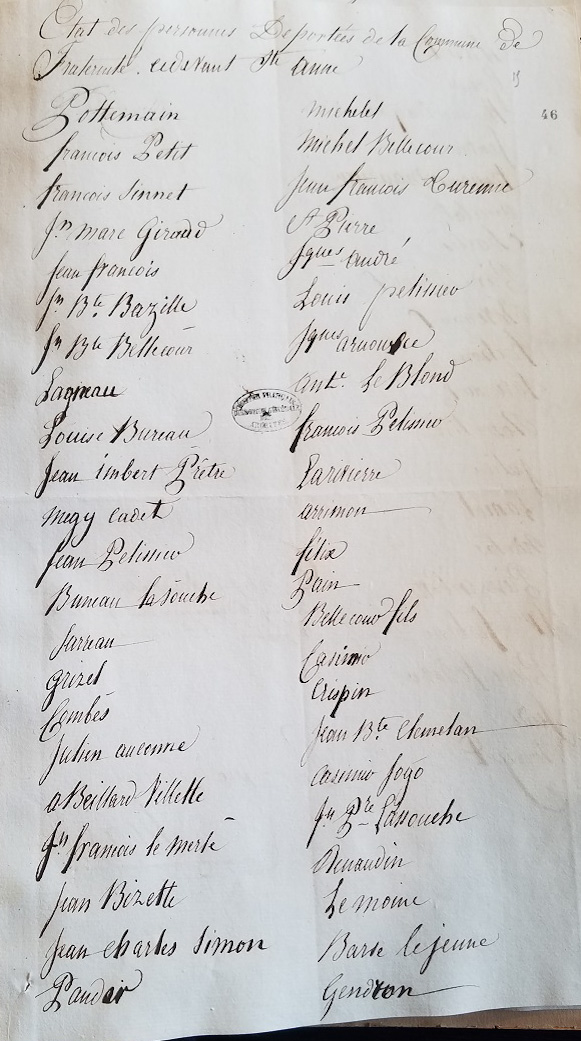 Etat des personnes Déportées de la Commune de
Fraternité cidevant Ste anne
46
Pottemain
francois Petit
francois Sinnet
Jn marc Giraud
Jean francois
Jn Bte Bazille
Jn Bte Bellecour
Lagneau
Louise Bureau
Jean imbert Prêtre
megy cadet
Jean Pelissier
Bureau la souche
Sarreau
grizel
Combés
Julien
a Beillard Villette
Jn francois le merle
Jean Bizette
Jean charles Simon
michelet
Michel Bellecour
Jean francois Turenne
St Pierre
Jques andré
Louis pelissier
Jques
Ante Le Blond
francois Pelissier
Larivierre
arrimon
félix
Pain
Bellecour fils
Casimir
Crispin
Jean Bte
Casimir Jogo
Jn Pre Lasouche
Renaudin
Le moine
Barse le jeune
Gendron